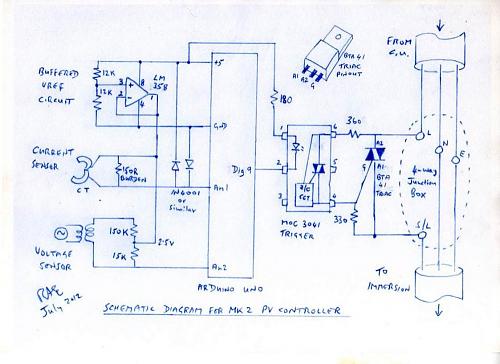 BUFFERED
VREF
CIRCUIT
12K
12K
3
8
2
1
4
LM
358
+5
GND
Dig 9
An1
An2
ARDUINO UNO
CURRENT
SENSOR
CT
150R
BURDEN
1N4001
or
similar
VOLTAGE
SENSOR
150K
15K
2.5V
180
1
2
3
6
5
4
Z/C
CCT
MOC 3041
TRIGGER
360
330
A2
G
A1
BTA
41
TRIAC
A1 A2 G
BTA 41
TRIAC
PINOUT
FROM
C.U.
L
N
E
S/L
4-way
Junction
Box
TO
IMMERSION
RAE
July 2012
SCHEMATIC DIAGRAM FOR MK2 PV CONTROLLER